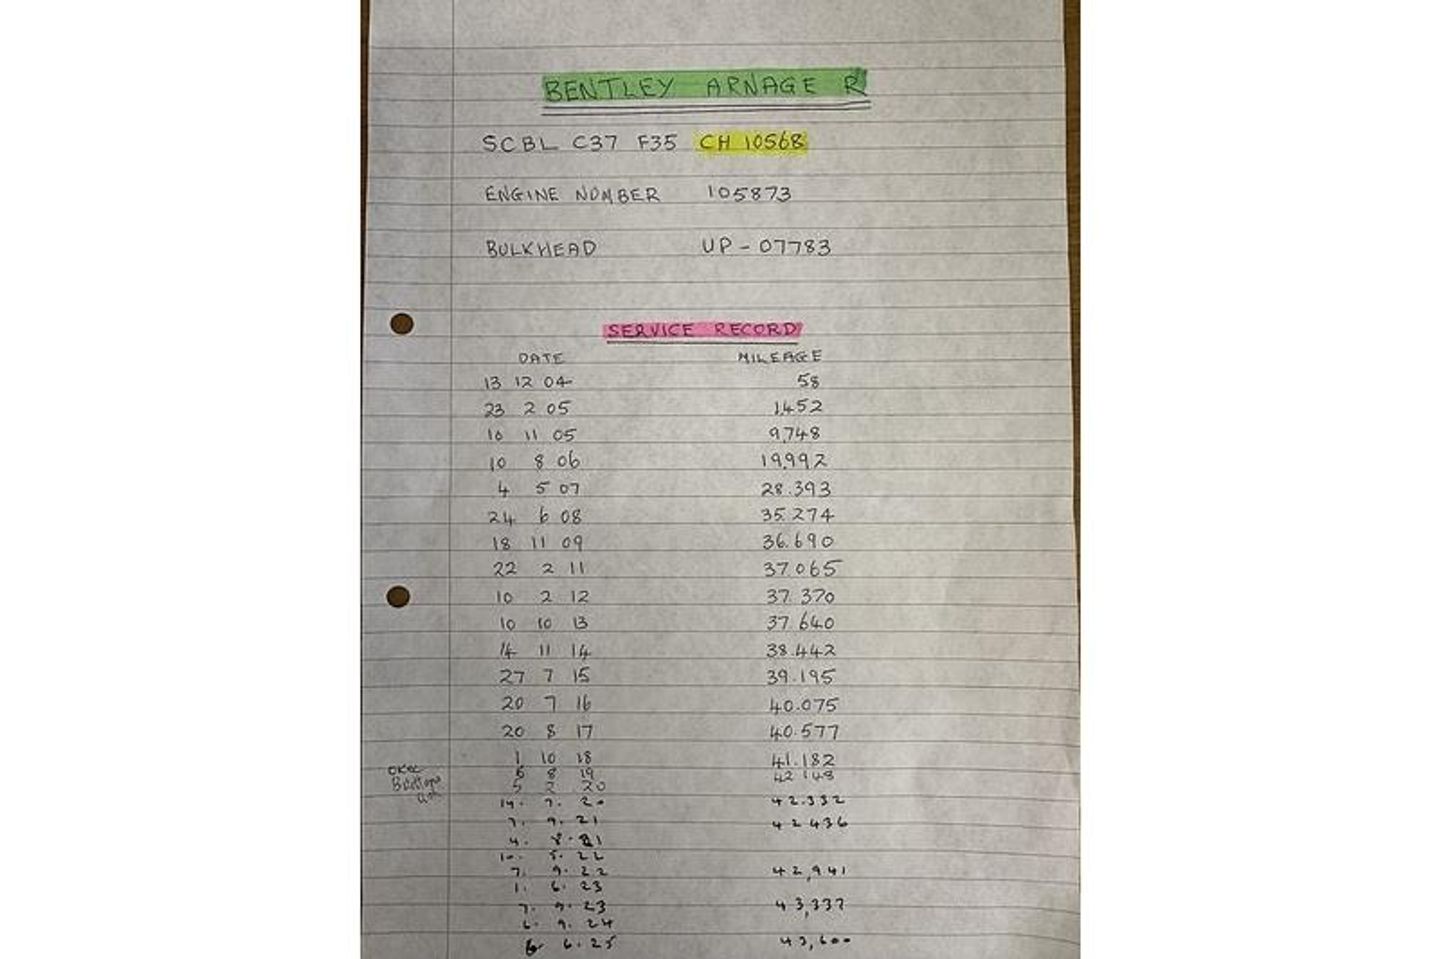 BENTLEY ARNAGE R
SCBL C37 F35 CH 10568
ENGINE NUMBER 105873
BULKHEAD UP-07783
SERVICE RECORD
DATE MILEAGE
13 12 04 58
23 2 05 1,452
10 11 05 9,748
10 8 06 19,992
4 5 07 28.393
24 6 08 35.274
18 11 09 36.690
22 2 11 37.065
10 2 12 37.370
10 10 13 37.640
14 11 14 38.442
27 7 15 39.195
20 7 16 40.075
20 8 17 40.577
1 10 18 41.182
6 8 19 42148
5 2 20
14. 7. 20 42.332
7. 9. 21 42436
4. 8. 21
10. 5. 22
7. 9. 22 42,941
1. 6. 23
7. 9. 23 43,337
6. 9. 24
6. 6. 25 43,600